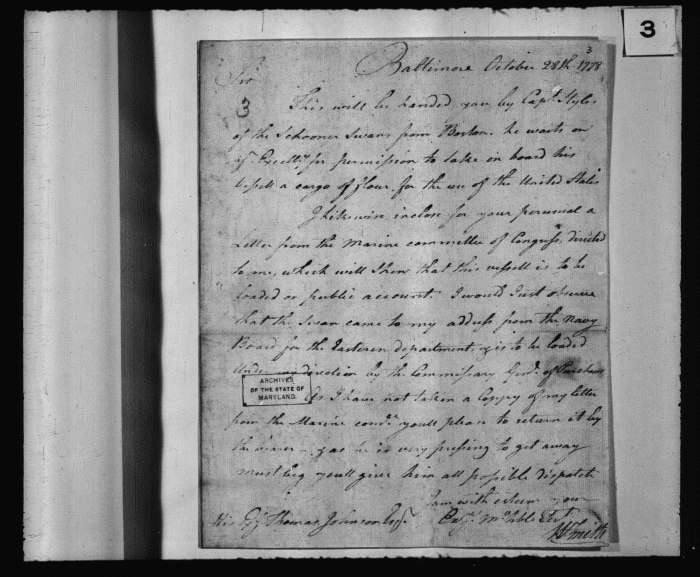 3
3
Baltimore October 28th 1778
Sir
3
This will be handed you by Capt. Styles
of the Schooner Swan from Boston. he waits on
yr. Excelly. for permission to take on board his
vessell a cargo of flour for the use of the United States
I likewise inclose for your perusal a
Letter from the Marine committee of Congress, directed
to me, which will shew that this vessell is to be
loaded on public account. I would Just observe
that the Swan came to my address from the Navy
Board for the Eastern department, & is to be loaded
under my direction by the Commissary Genl. of Purchases
ARCHIVES
OF THE STATE OF
MARYLAND.
As I have not taken a Coppy of my letter
from the Marine comtte. youll please to return it by
the bearer - & as he is very pressing to get away
must beg youll give him all possible dispatch
I am with esteem your
Exys. Mo. Hble Servt.
His Exy Thomas Johnson Esqr.
Smith